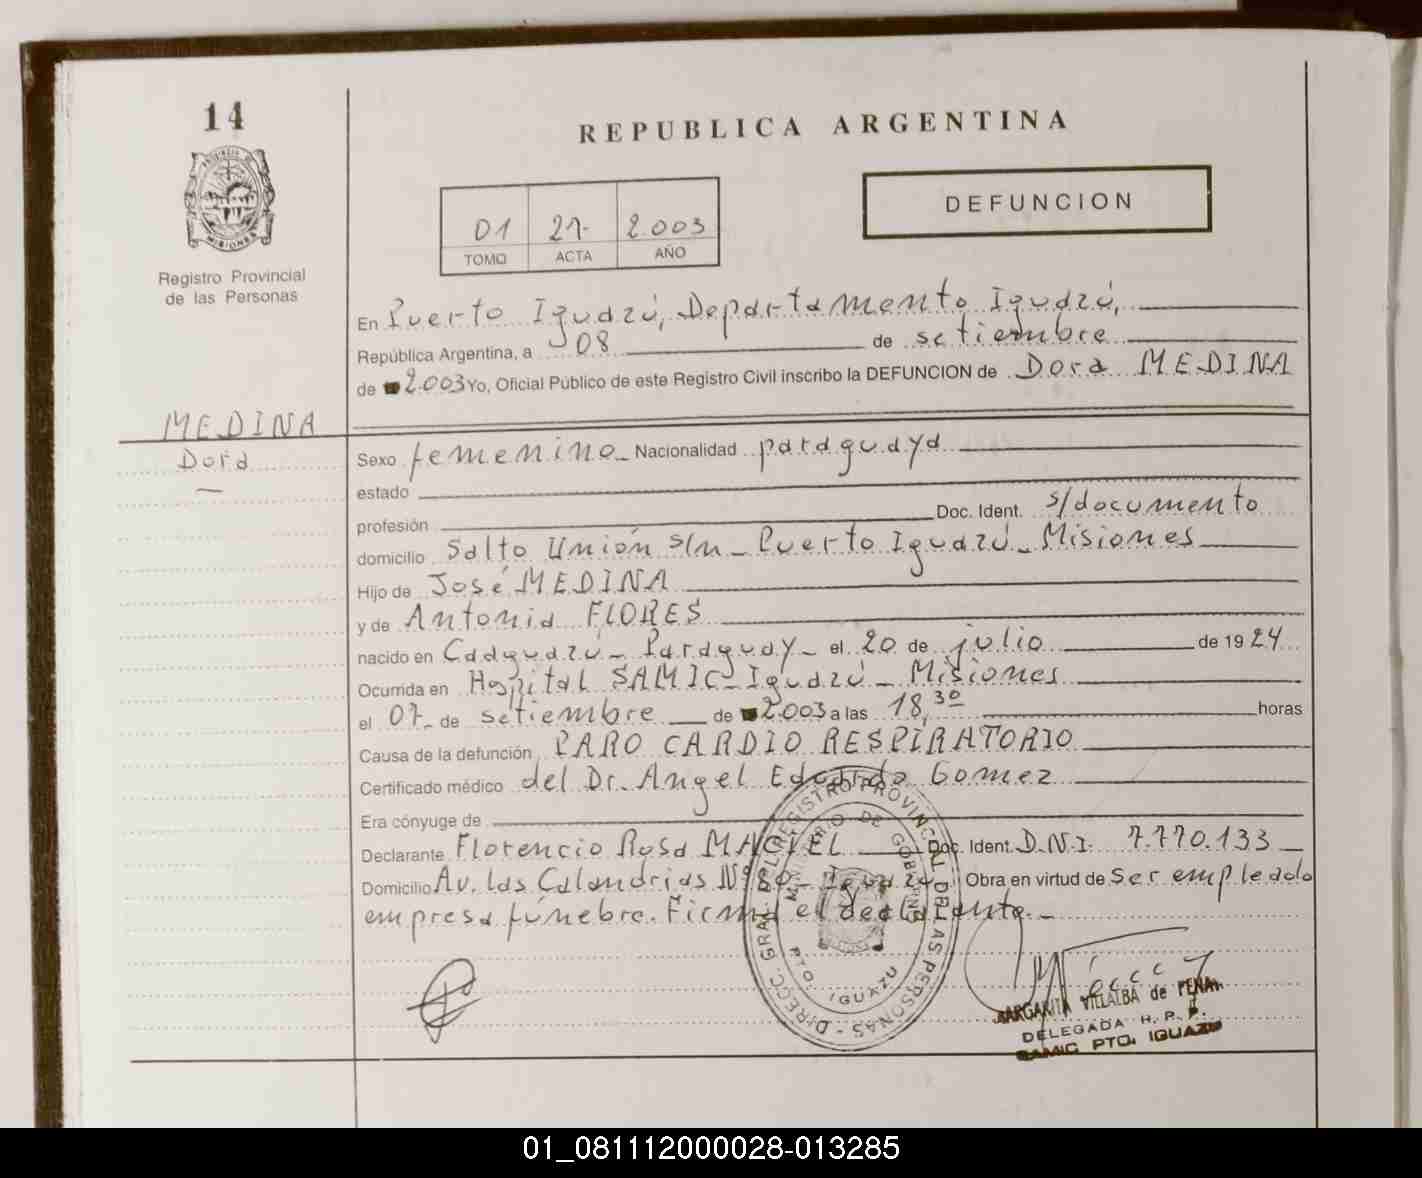 14
REPUBLICA ARGENTINA
DEFUNCION
01 27- 2.003
TOMO ACTA AÑO
Registro Provincial
de las Personas
En Puerto Iguazú, Departamento Iguazú,
República Argentina, a 08 de setiembre
de 2.003 Yo, Oficial Público de este Registro Civil inscribo la DEFUNCION de Dora MEDINA
MEDINA
Dora
Sexo femenino Nacionalidad paraguaya
estado
profesión Doc. Ident. s/documento
domicilio Salto Unión s/n - Puerto Iguazú - Misiones
Hijo de José MEDINA
y de Antonia FLORES
nacido en Caaguazú - Paraguay - el 20 de julio de 1924
Ocurrida en Hospital SAMIC - Iguazú - Misiones
el 07 - de setiembre de 2.003 a las 18,30 horas
Causa de la defunción PARO CARDIO RESPIRATORIO
Certificado médico del Dr. Angel Eduardo Gomez
Era cónyuge de
Declarante Florencio Rosa MACIEL Doc. Ident. D.N.I. 7.770.133
Domicilio Av. Las Calandrias Nº 80 - Iguazú - Obra en virtud de Ser empleado
empresa fúnebre. Firma el declarante. -
DIRECC. GRAL. DEL REGISTRO PROVINCIAL DE LAS PERSONAS -
MINISTERIO DE GOBIERNO
PTO. IGUAZU
MARGARITA VILLALBA de PEÑA
DELEGADA H. R. P.
SAMIC PTO. IGUAZU
01_081112000028-013285